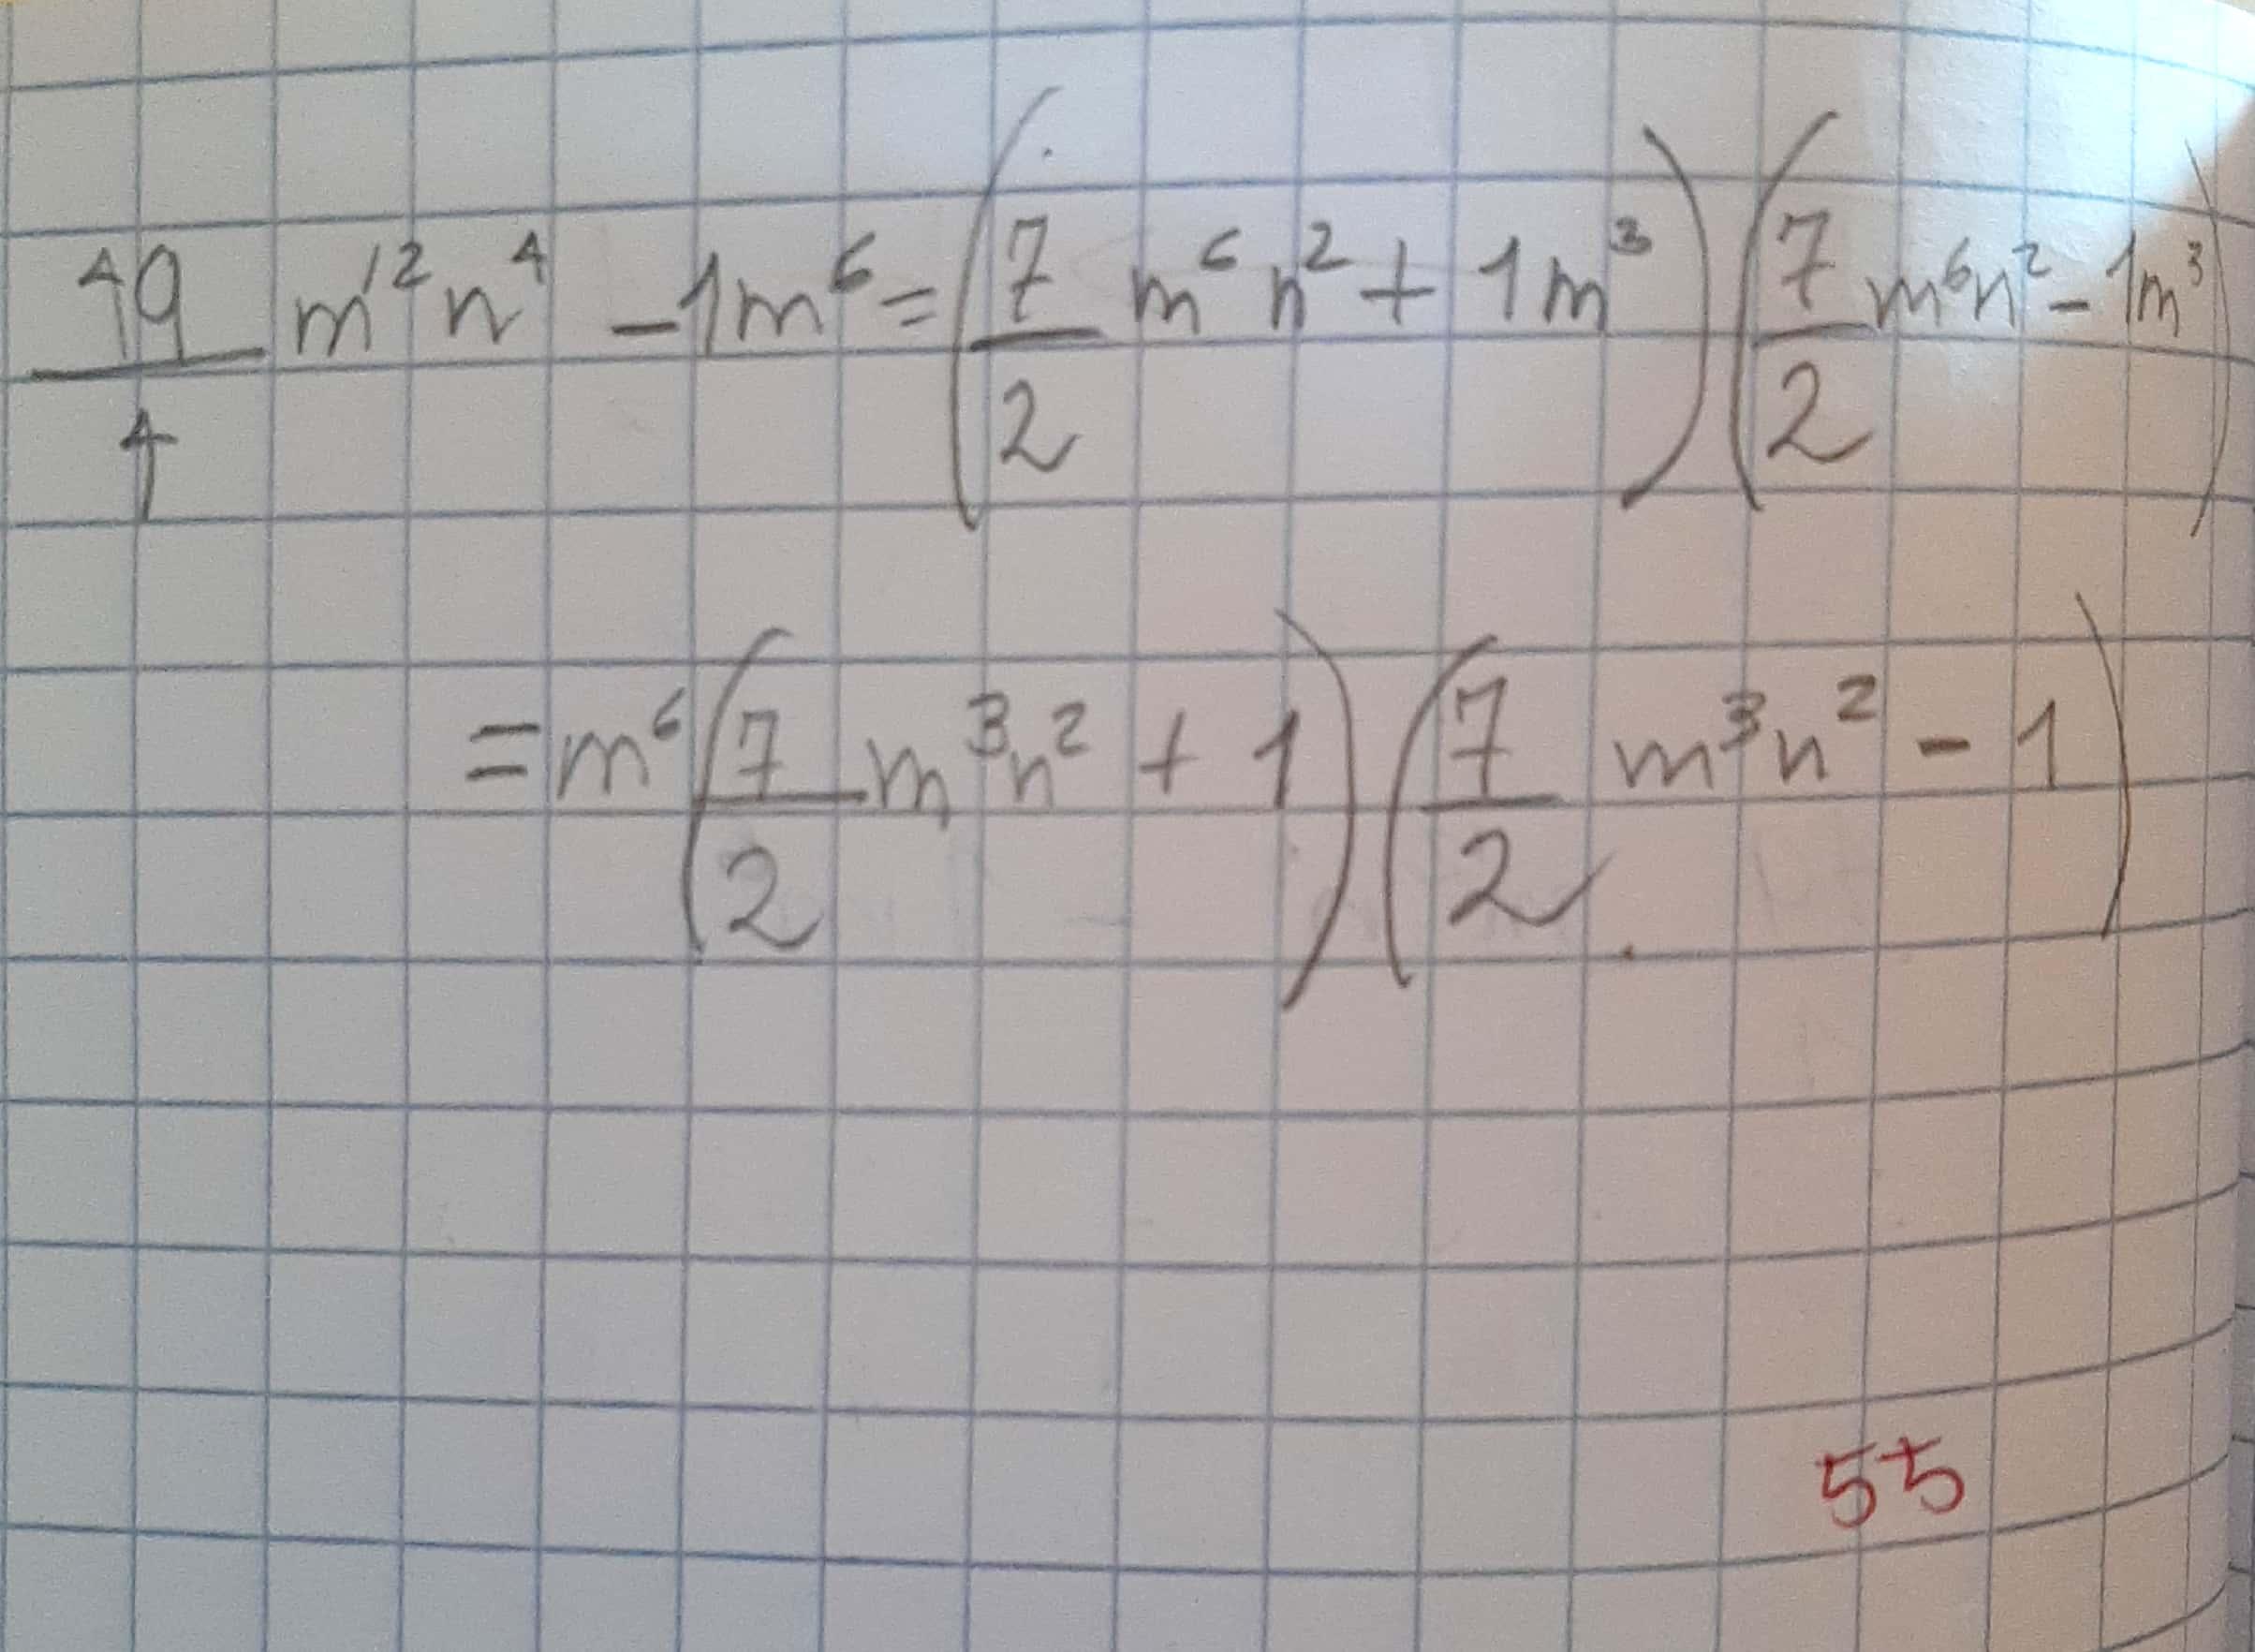 49/4 m¹²n⁴ - 1m⁶ = (7/2 m⁶n² + 1m³)(7/2 m⁶n² - 1m³)
= m⁶(7/2 m³n² + 1)(7/2 m³n² - 1)
55